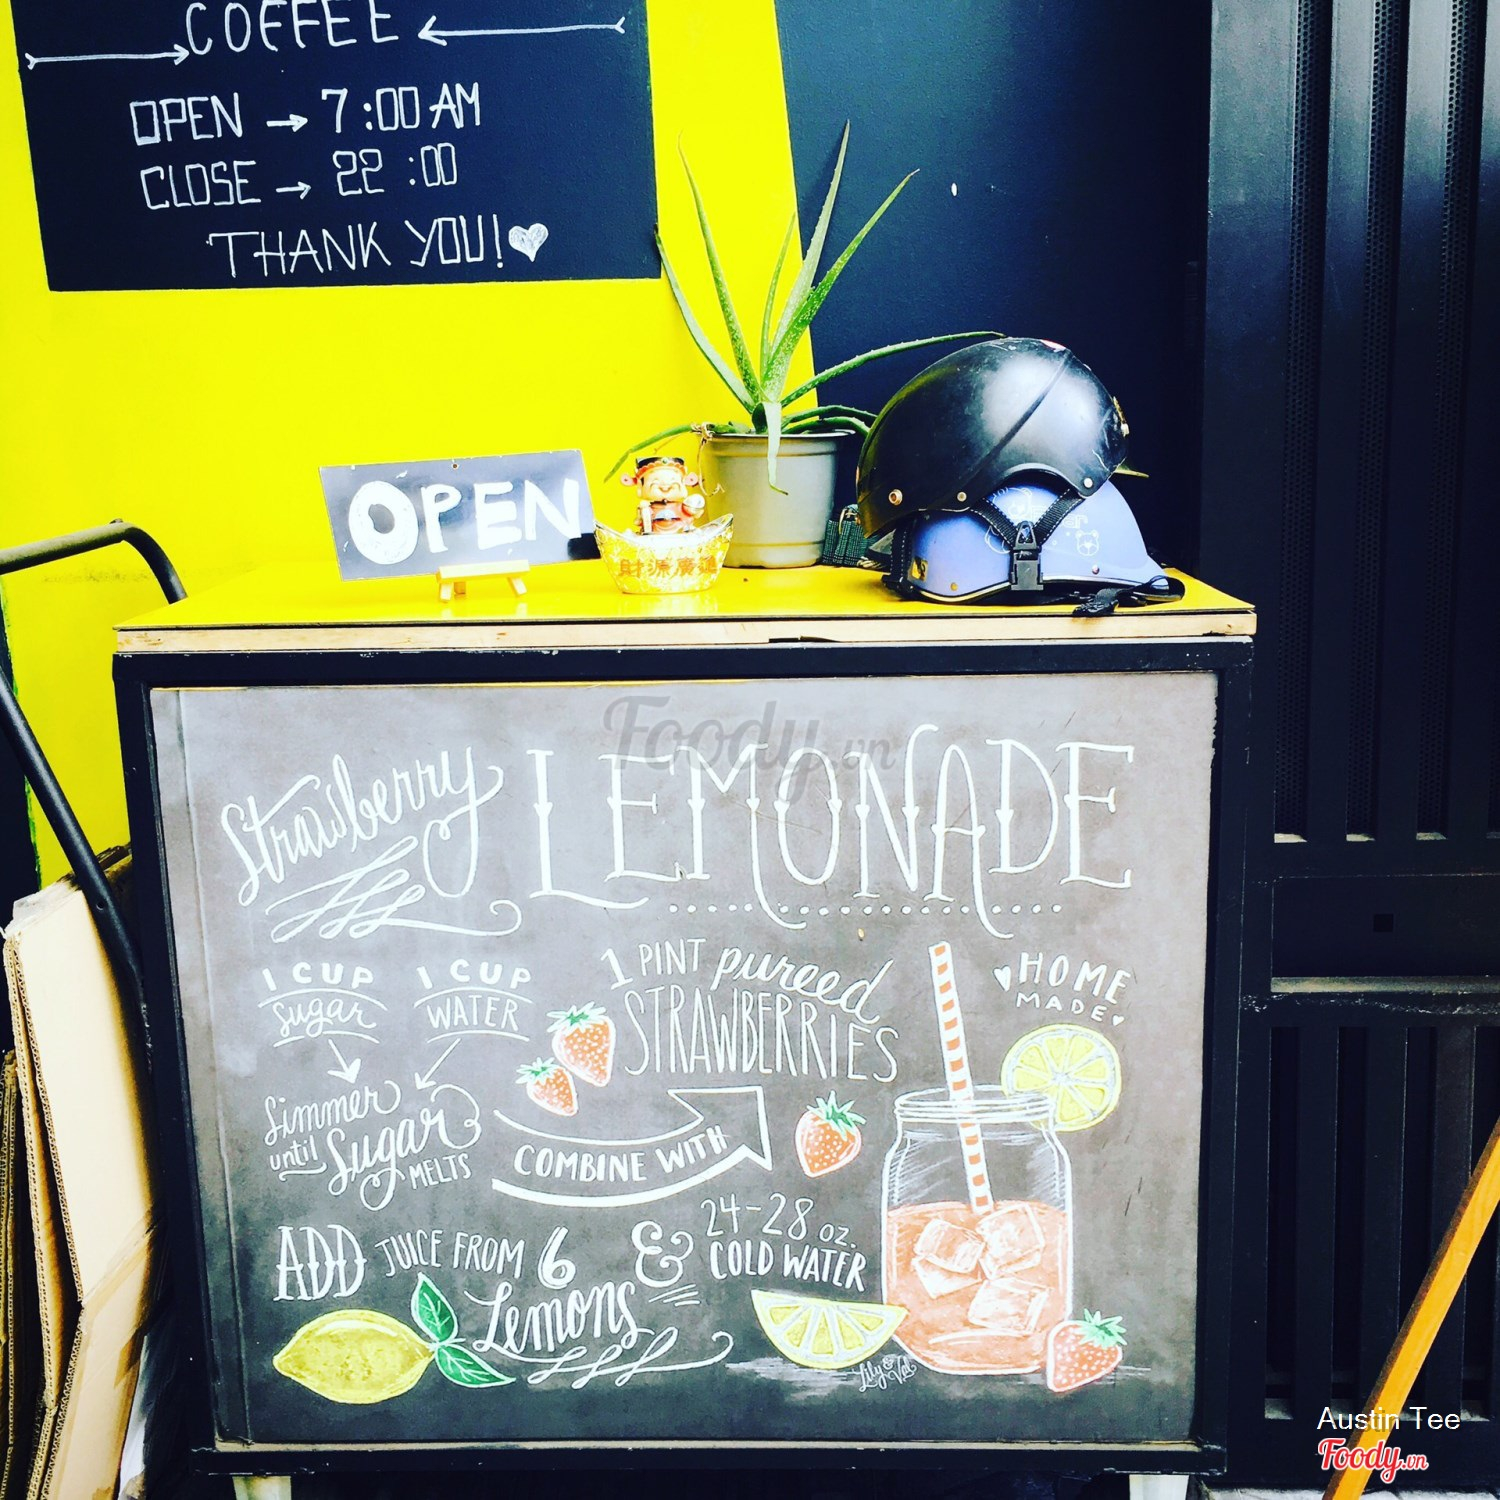 COFFEE
OPEN → 7:00 AM
CLOSE → 22:00
THANK YOU!
OPEN
財源廣進
Foody.vn
Strawberry LEMONADE
1 CUP sugar
1 CUP WATER
1 PINT pureed STRAWBERRIES
HOME MADE
Simmer until Sugar MELTS
COMBINE WITH
ADD JUICE FROM 6 Lemons
& 24-28 oz. COLD WATER
Lily & Val
Austin Tee
Foody.vn